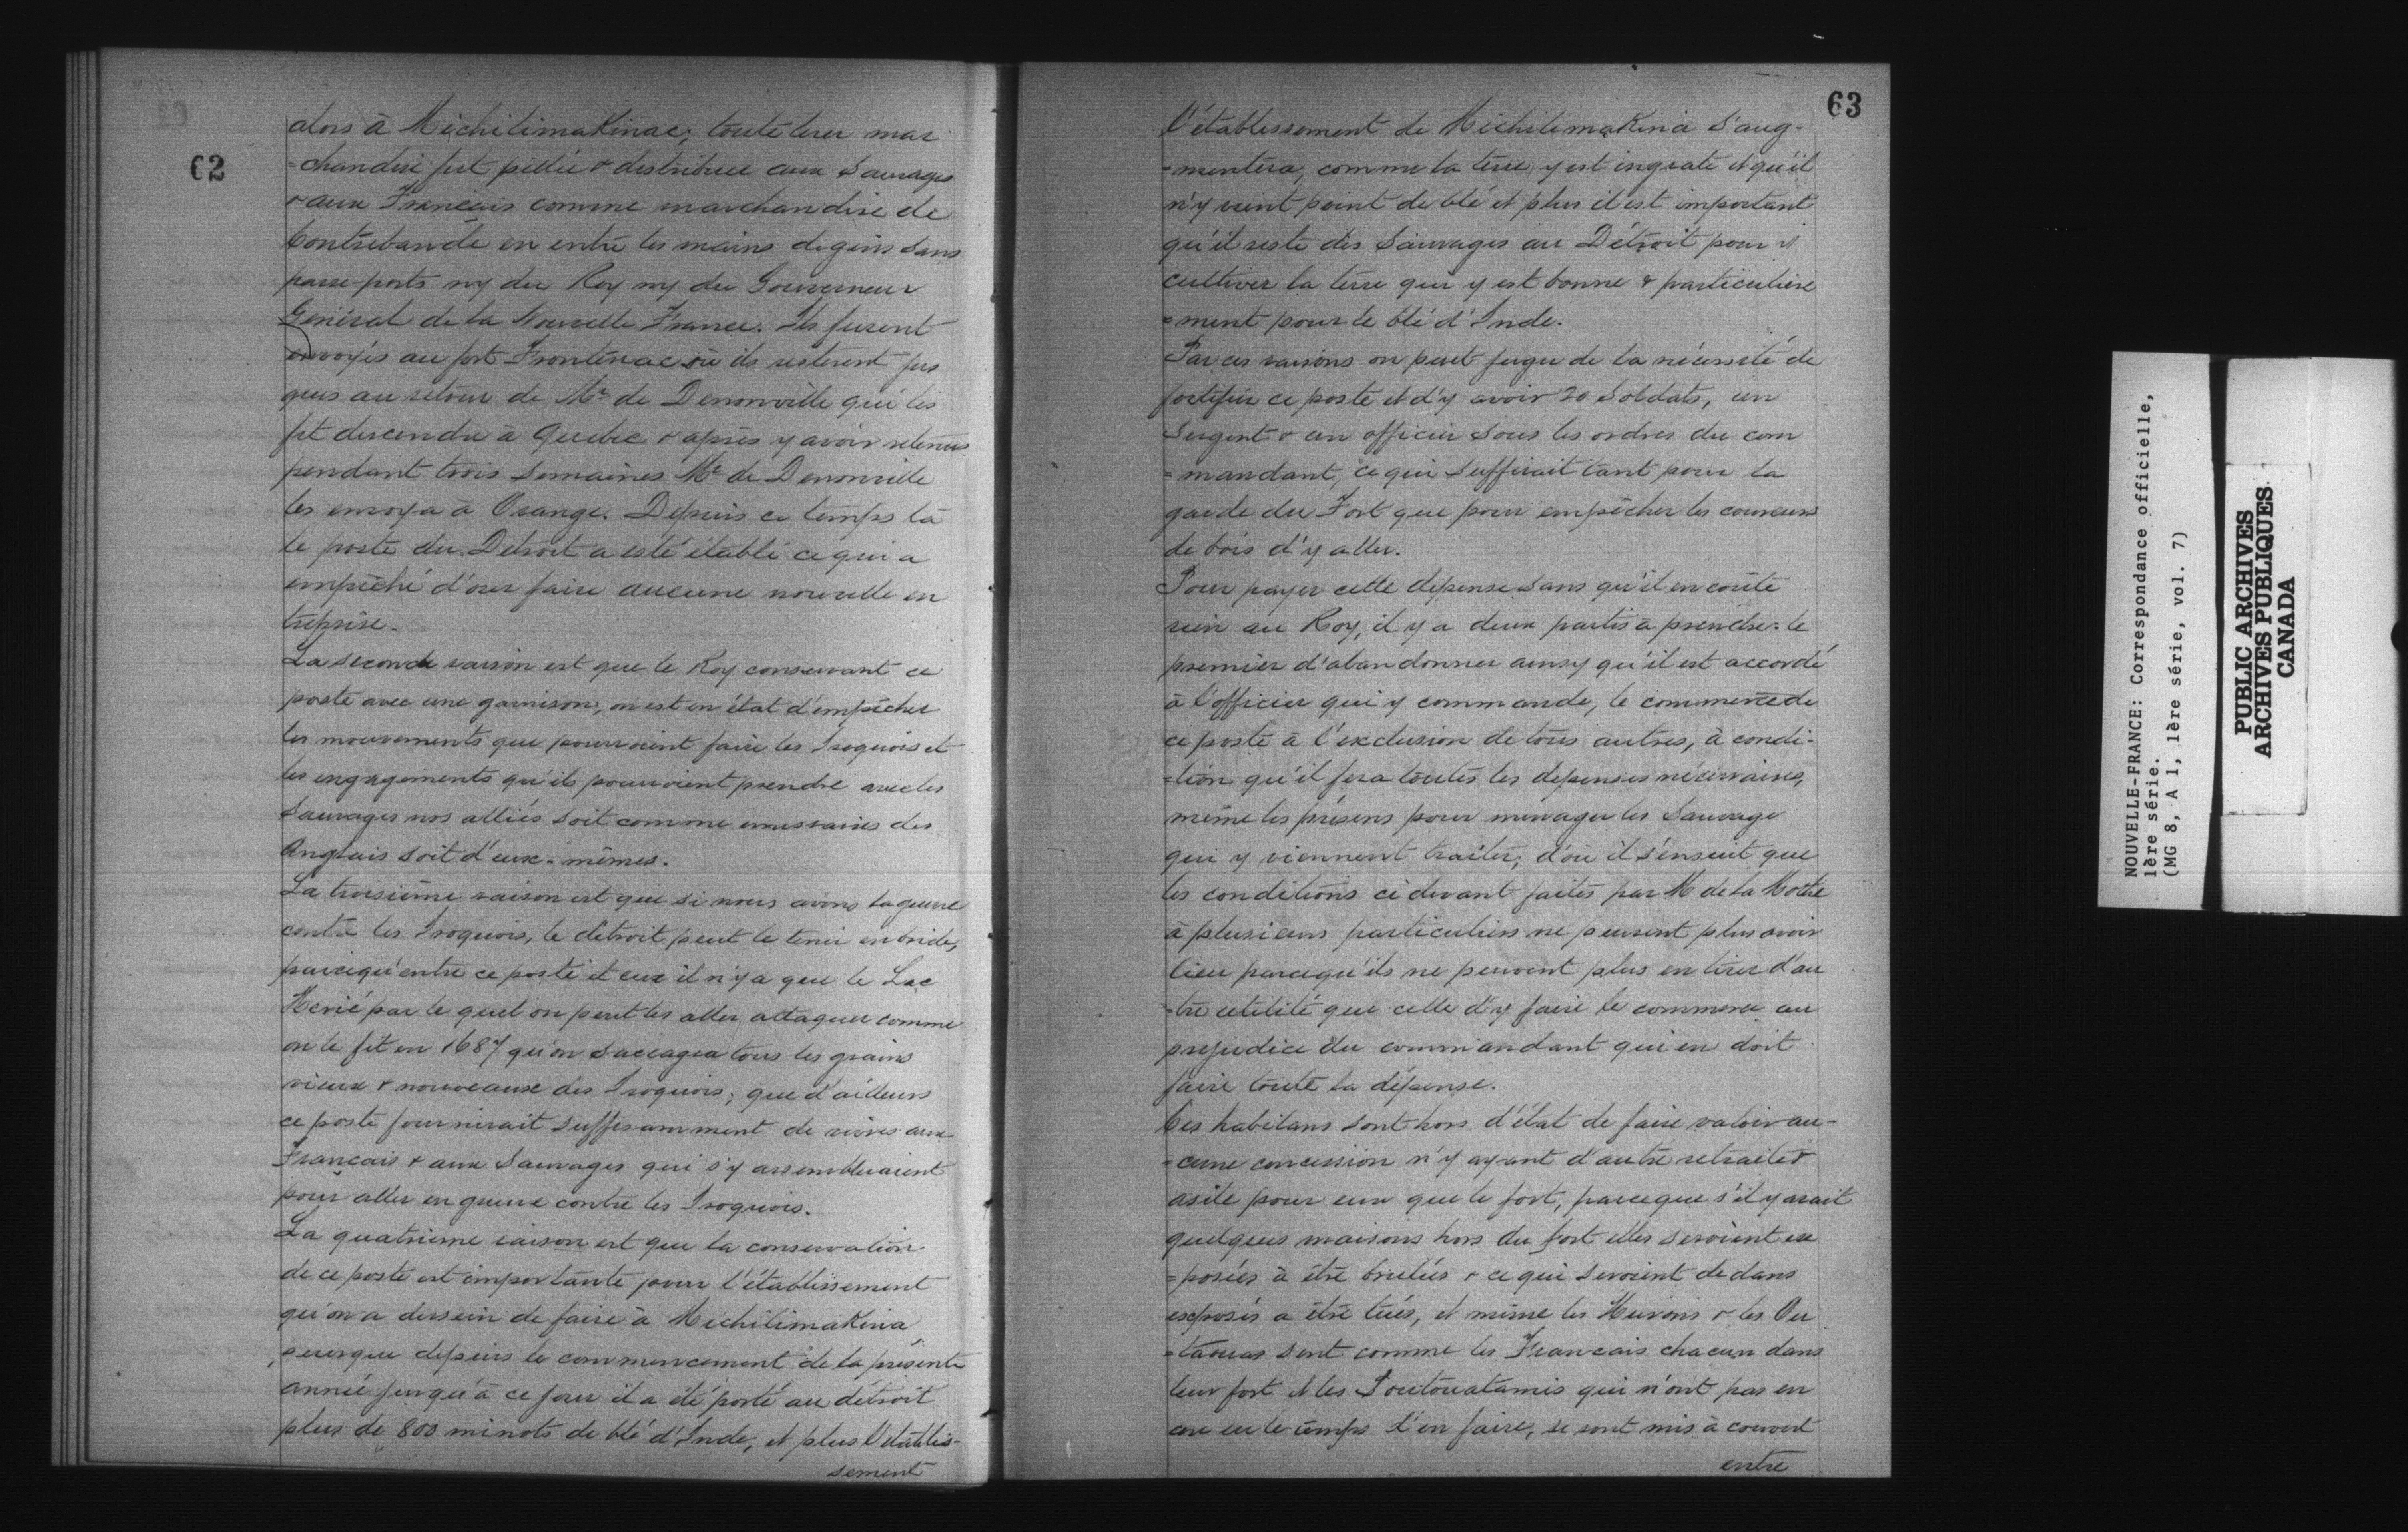 62
alors à Michilimakinac; toute leur mar
=chandise fut pillée & distribuée aux Sauvages
& aux Français comme marchandise de
Contrebande en entre les mains de gens sans
passe-ports ny du Roy ny du Gouverneur
Général de la Nouvelle France. Ils furent
envoyés au fort Frontenac où ils resterent jus
ques au retour de Mr de Denonville qui les
fit descendre à Quebec & après y avoir retenus
pendant trois semaines Mr de Denonville
les envoya à Orange. Depuis ce temps là
le poste du Detroit a esté établi ce qui a
empêché d'oser faire aucune nouvelle en
treprise.
La seconde raison est que le Roy conservant ce
poste avec une garnison, on est en état d'empêcher
les mouvements que pourroient faire les Iroquois et
les engagements qu'ils pourroient prendre avec les
Sauvages nos alliés soit comme emissaires des
Anglais soit d'eux-mêmes.
La troisième raison est que si nous avons la guerre
contre les Iroquois, le détroit peut le tenir en bride,
parcequ'entre ce poste et eux il n'y a que le Lac
Herié par le quel on peut les aller attaquer comme
on le fit en 1687 qu'on saccagea tous les grains
vieux & nouveaux des Iroquois; que d'ailleurs
ce poste fournirait suffisamment de vivres aux
Français & aux Sauvages qui s'y assembleraient
pour aller en guerre contre les Iroquois.
La quatrième raison est que la conservation
de ce poste est importante pour l'établissement
qu'on a dessein de faire à Michilimakina,
puisque depuis le commencement de la présente
année jusqu'à ce jour il a été porté au détroit
plus de 800 minots de blé d'Inde, et plus l'établis-
sement
63
l'établissement de Michilimakina s'aug-
=mentera, comme la terre y est ingrate et qu'il
n'y vient point de blé et plus il est important
qu'il reste des Sauvages au Détroit pour y
cultiver la terre qui y est bonne & particulière
=ment pour le blé d'Inde.
Par ces raisons on peut juger de la nécessité de
fortifier ce poste et d'y avoir 20 Soldats, un
Sergent & un officier sous les ordres du com
=mandant, ce qui suffirait tant pour la
garde du Fort que pour empêcher les coureurs
de bois d'y aller.
Pour payer cette dépense sans qu'il en coute
rien au Roy, il y a deux partis à prendre. le
premier d'abandonner ainsy qu'il est accordé
à l'officier qui y commande, le commerce de
ce poste à l'exclusion de tous autres, à condi-
=tion qu'il fera toutes les dépenses nécessaires,
même les présens pour menager les Sauvage
qui y viennent traiter, d'où il s'ensuit que
les conditions ci devant faites par M de la Mothe
à plusieurs particuliers ne peuvent plus avoir
lieu parcequ'ils ne peuvent plus en tirer d'au
=tre utilité que celle d'y faire le commerce au
prejudice du commandant qui en doit
faire toute la dépense.
Ces habitans sont hors d'état de faire valoir au-
=cune concession n'y ayant d'autre retraite &
asile pour eux que le fort, parceque s'il y avait
quelques maisons hors du fort elles seroient ex
=posées à être brulées & ce qui seroient dedans
exposés a être tués, et même les Hurons & les Ou
=taouas sont comme les Francais chacun dans
leur fort et les Poutouatamis qui n'ont pas en
core eu le temps d'en faire, se sont mis à couvert
entre
NOUVELLE-FRANCE: Correspondance officielle,
1ère série.
(MG 8, A 1, 1ère série, vol. 7)
PUBLIC ARCHIVES
ARCHIVES PUBLIQUES
CANADA